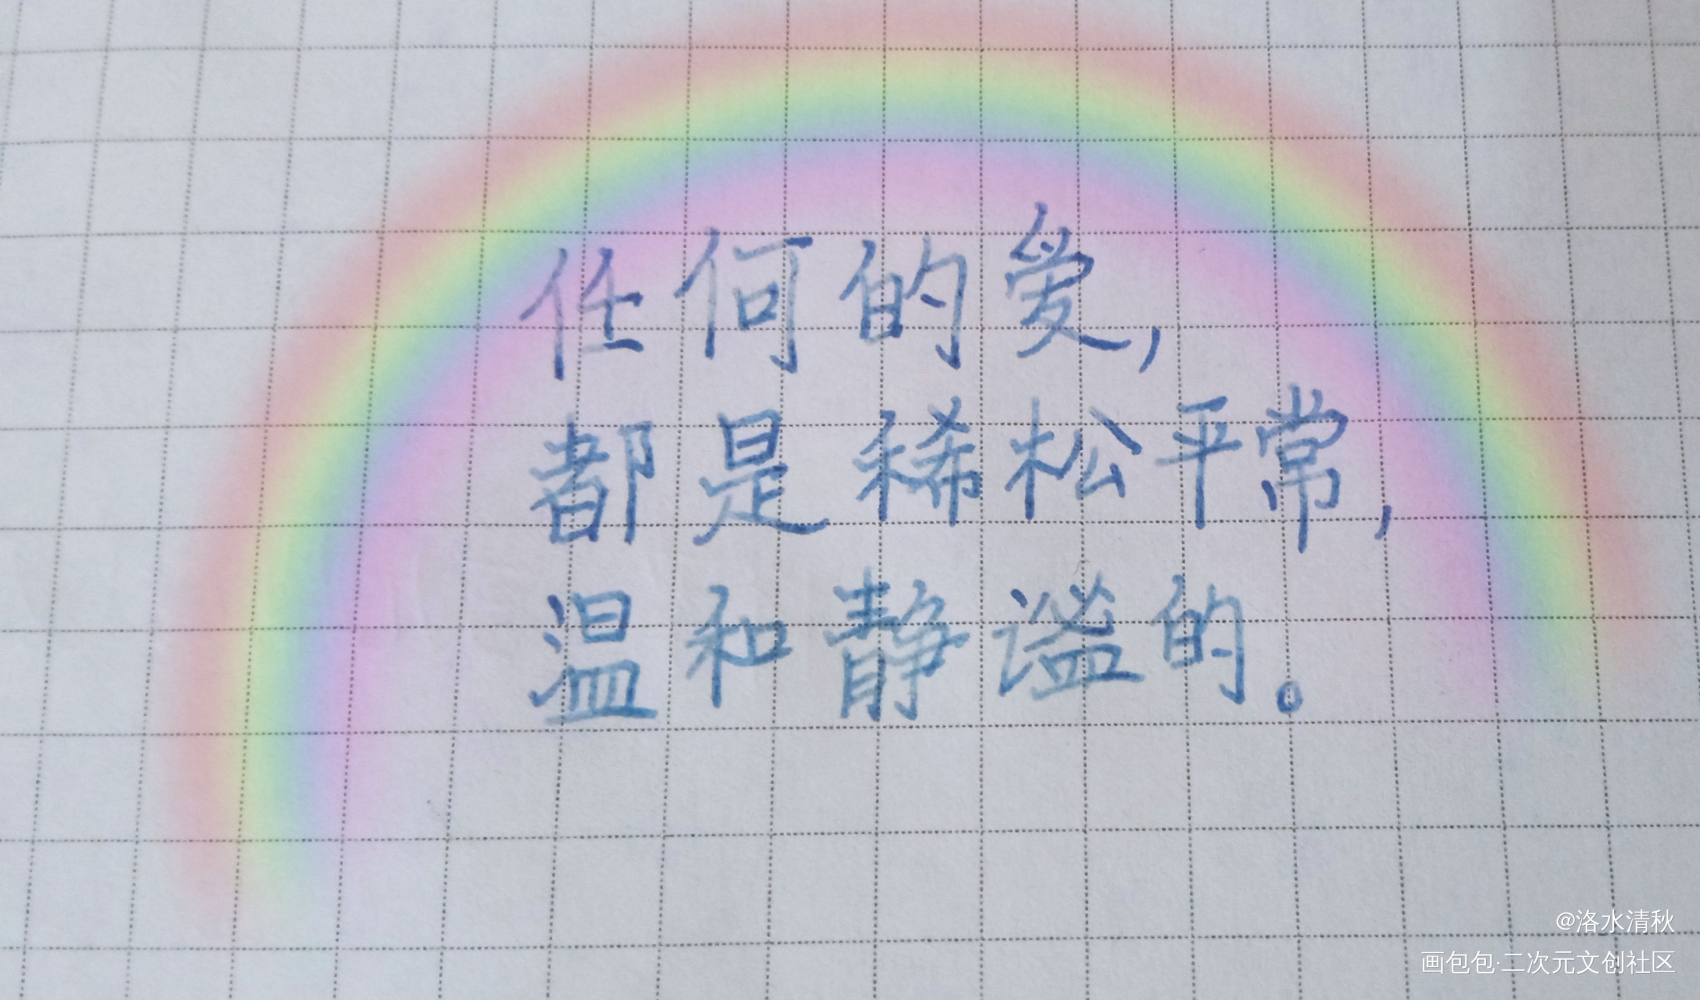 任何的爱，
都是稀松平常，
温和静谧的。
@洛水清秋
画包包·二次元文创社区